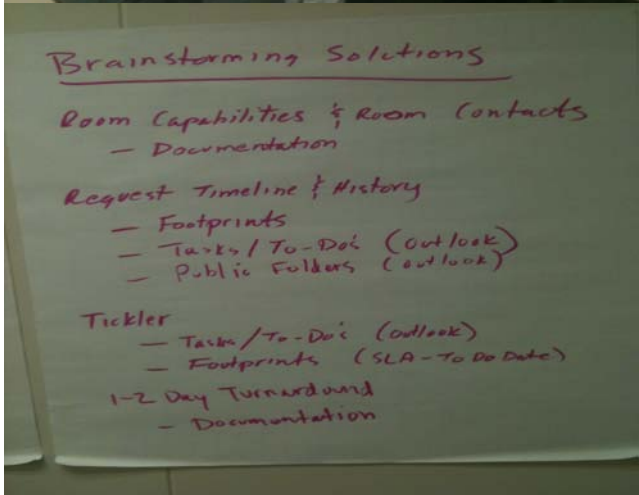 Brainstorming Solutions
Room Capabilities & Room Contacts
— Documentation
Request Timeline & History
— Footprints
— Tasks / To-Do's (outlook)
— Public Folders (outlook)
Tickler
— Tasks / To-Do's (outlook)
— Footprints (SLA - To Do Date)
1-2 Day Turnaround
— Documentation